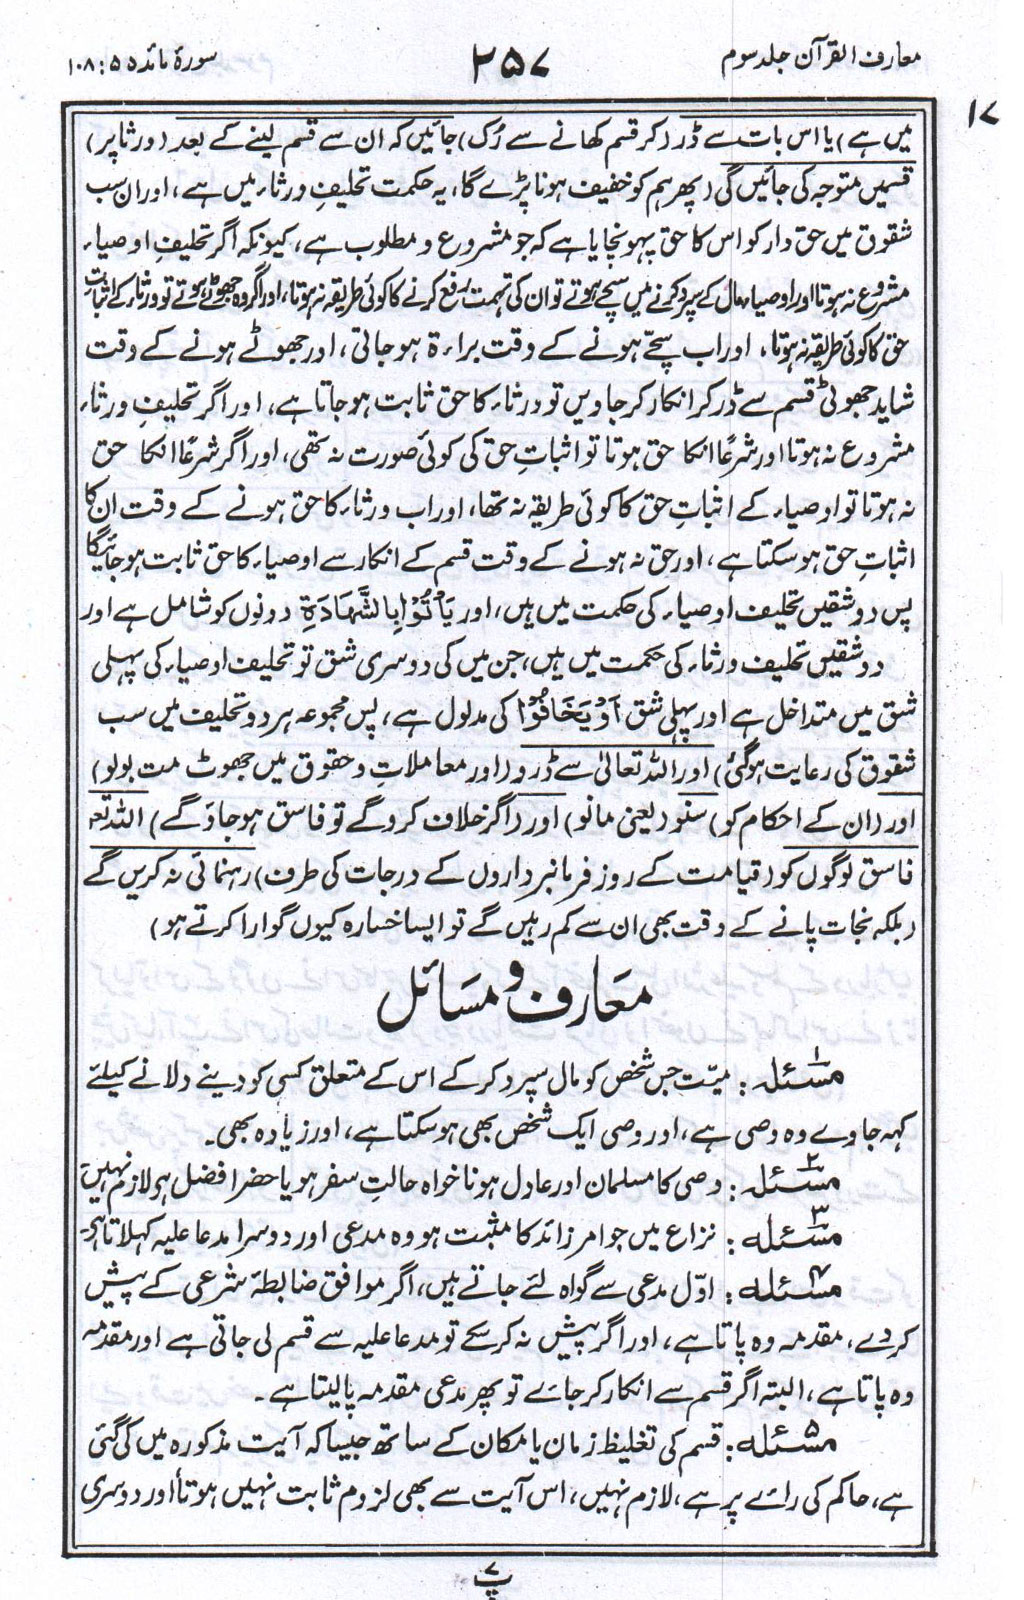 معارف القرآن جلد سوم
۲۵۷
سورۂ مائدہ ۵ : ۱۰۸
۱۷
میں ہے) یا اس بات سے ڈر (کر قسم کھانے سے رُک) جائیں کہ ان سے قسم لینے کے بعد (ورثاء پر)
قسمیں متوجہ کی جائیں گی (پھر ہم کو خفیف ہونا پڑے گا، یہ حکمت تحلیفِ ورثاء میں ہے، اور ان سب
شقوق میں حق دار کو اس کا حق پہونچایا ہے کہ جو مشروع و مطلوب ہے، کیونکہ اگر تحلیفِ اوصیاء
مشروع نہ ہوتا اور اوصیاء مال کے سپرد کرنے میں سچے ہوتے تو ان کی تہمت رفع کرنے کا کوئی طریقہ نہ ہوتا، اور اگر وہ جھوٹے ہوتے تو ورثاء کے اثباتِ
حق کا کوئی طریقہ نہ ہوتا، اور اب سچے ہونے کے وقت براءۃ ہو جاتی، اور جھوٹے ہونے کے وقت
شاید جھوٹی قسم سے ڈر کر انکار کر جاویں تو ورثاء کا حق ثابت ہو جاتا ہے، اور اگر تحلیفِ ورثاء
مشروع نہ ہوتا اور شرعًا انکا حق ہوتا تو اثباتِ حق کی کوئی صورت نہ تھی، اور اگر شرعًا انکا حق
نہ ہوتا تو اوصیاء کے اثباتِ حق کا کوئی طریقہ نہ تھا، اور اب ورثاء کا حق ہونے کے وقت ان کا
اثباتِ حق ہو سکتا ہے، اور حق نہ ہونے کے وقت قسم کے انکار سے اوصیاء کا حق ثابت ہو جائیگا
پس دو شقیں تحلیف اوصیاء کی حکمت میں ہیں، اور یَأْتُوْا بِالشَّهَادَةِ دونوں کو شامل ہے اور
دو شقیں تحلیف ورثاء کی حکمت میں ہیں، جن میں کی دوسری شق تو تحلیف اوصیاء کی پہلی
شق میں متداخل ہے اور پہلی شق اَوْ يَخَافُوْا کی مدلول ہے، پس مجموعہ ہر دو تحلیف میں سب
شقوق کی رعایت ہو گئی) اور اللہ تعالیٰ سے ڈرو (اور معاملات و حقوق میں جھوٹ مت بولو)
اور (ان کے احکام کو) سنو (یعنی مانو) اور (اگر خلاف کرو گے تو فاسق ہو جاؤ گے) اللہ تعہ
فاسق لوگوں کو (قیامت کے روز فرمانبرداروں کے درجات کی طرف) رہنمائی نہ کریں گے
(بلکہ نجات پانے کے وقت بھی ان سے کم رہیں گے تو ایسا خسارہ کیوں گوارا کرتے ہو)
مَعَارف و مسَائل
مسئلہ ۱: میّت جس شخص کو مال سپرد کر کے اس کے متعلق کسی کو دینے دلانے کیلئے
کہہ جاوے وہ وصی ہے، اور وصی ایک شخص بھی ہو سکتا ہے، اور زیادہ بھی۔
مسئلہ ۲: وصی کا مسلمان اور عادل ہونا خواہ حالتِ سفر ہو یا حضر افضل ہو لازم نہیں
مسئلہ ۳: نزاع میں جو امر زائد کا مثبت ہو وہ مدعی اور دوسرا مدعا علیہ کہلاتا ہو
مسئلہ ۴: اوّل مدعی سے گواہ لئے جاتے ہیں، اگر موافق ضابطۂ شرعی کے پیش
کر دے، مقدمہ وہ پاتا ہے، اور اگر پیش نہ کر سکے تو مدعا علیہ سے قسم لی جاتی ہے اور مقدمہ
وہ پاتا ہے، البتہ اگر قسم سے انکار کر جائے تو پھر مدعی مقدمہ پالیتا ہے۔
مسئلہ ۵: قسم کی تغلیظ زمان یا مکان کے ساتھ جیسا کہ آیت مذکورہ میں کی گئی
ہے، حاکم کی رائے پر ہے، لازم نہیں، اس آیت سے بھی لزوم ثابت نہیں ہوتا اور دوسری
پ